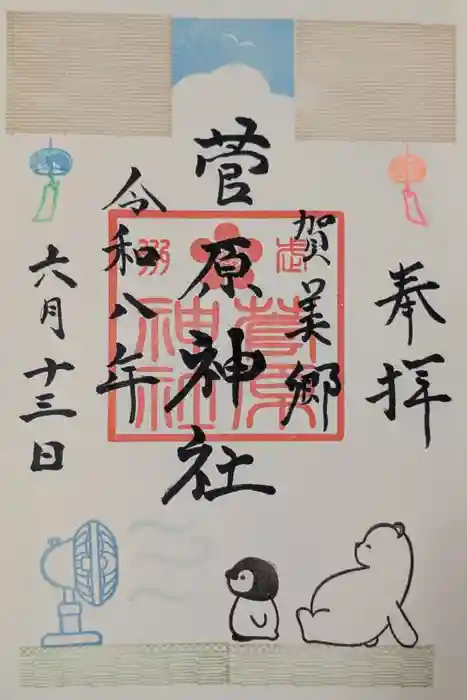 奉拝
賀美郷
菅原神社
令和八年
六月十三日
菅原
神社